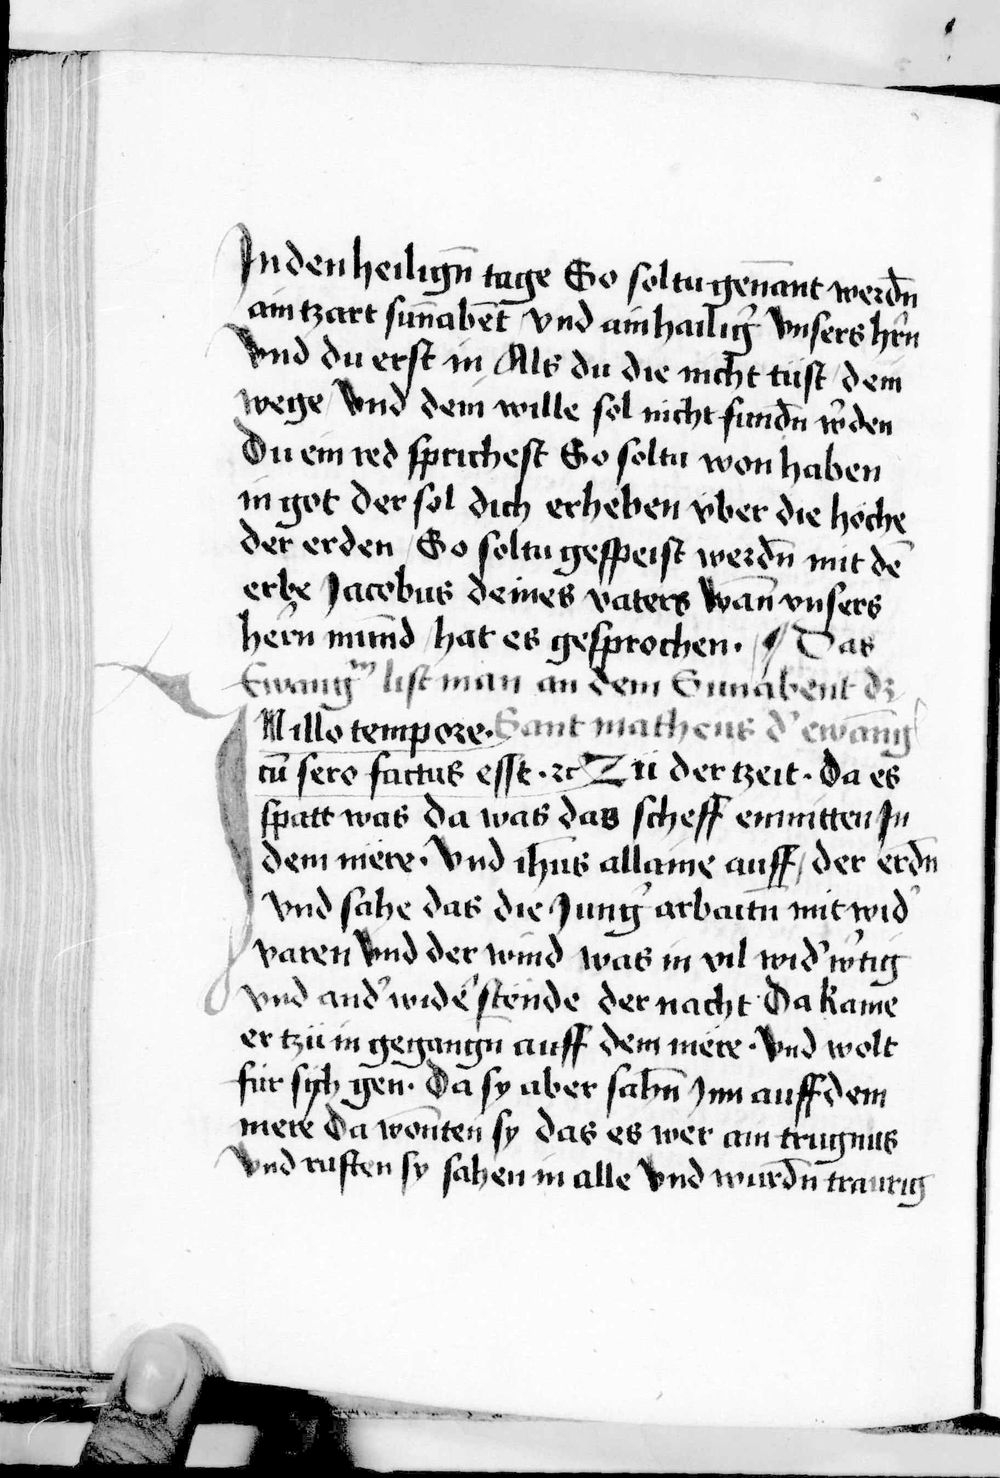 In den heilign̄ tage So soltu gen̄ant werdn̄
ain tzart sun̄abēt / vnd ain hailig̓ vnsers hr̄n
Vnd du erst in Als du die nicht tüst / dein
wege / Vnd dein wille sol nicht fundn̄ w̓den
Du ein red sprichest So soltu won haben
in got der sol dich erheben vber die höche
der erden / So soltu gespeist werdn̄ mit dē
erbe Jacobus deines vaters Wan̄ vnsers
her̄n mund / hat es gesprochen · ¶ Das
Ewangm̄ list man an dem Sunabent dz
IN illo tempore · Sant matheus d̓ ewanḡ
cū sero factus esset · ꝛc Zü der tzeit · Da es
spatt was da was das scheff enmitten Jn
dem mëre · Vnd ihūs allaine auff / der erdn̄
vnd sahe das die Jung̓ arbaitn̄ mit wid̓
varen Vnd der wind was in vil wid̓w̓tig
vnd and̓ wide̓ stende der nacht Da kame
er tzü in gegangn̄ auff dem mëre · Vnd wolt
für sich gen · Da sy aber sahn̄ Jnn auff dem
mere Da wonten sy das es wer ain trugnus
Vnd ruften sy sahen in alle Vnd wurdn̄ traurig